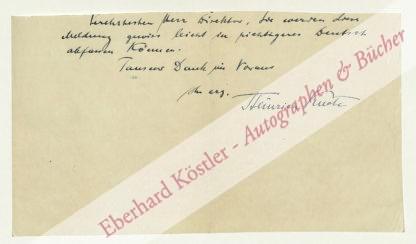 Verehrtester Herr Direktor, Sie werden diese
Meldung gewiss leicht in richtigeres Deutsch
abfassen können.
Tausend Dank im Voraus
Ihr erg.
Heinrich
Eberhard Köstler - Autographen & Bücher